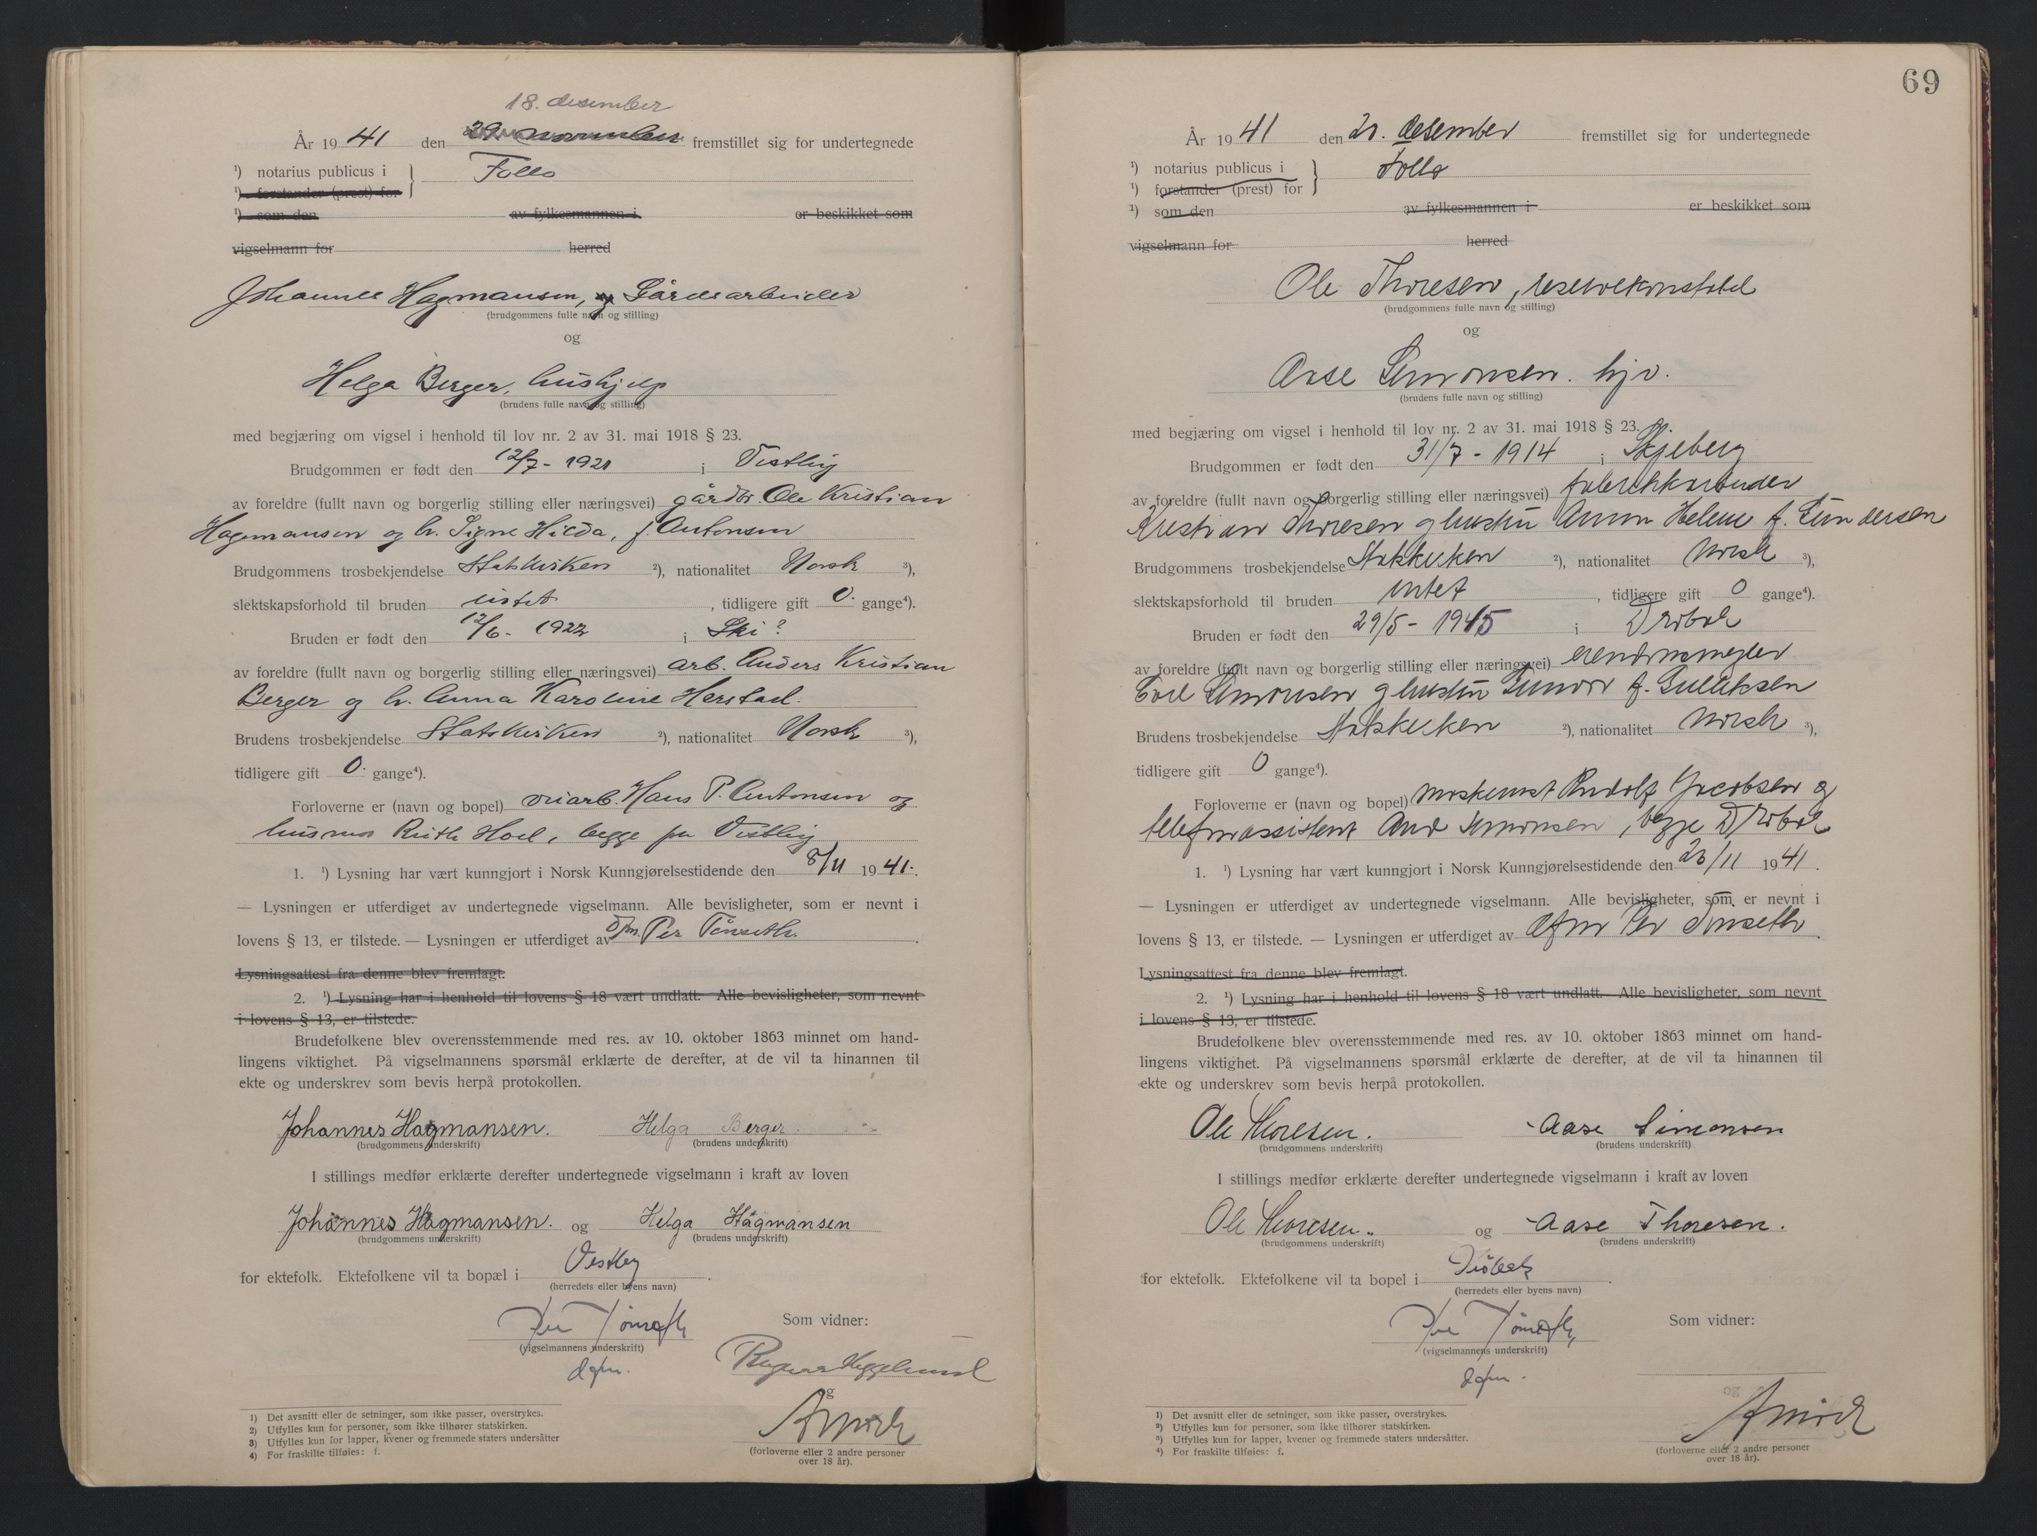 18. desember
År 1941 den 29 november fremstillet sig for undertegnede
¹) notarius publicus i Follo
¹) forstander (prest) for
¹) som den av fylkesmannen i er beskikket som
vigselmann for herred
Johannes Hagmansen, og Gårdsarbeider
(brudgommens fulle navn og stilling)
og
Helga Berger, hushjelp
(brudens fulle navn og stilling)
med begjæring om vigsel i henhold til lov nr. 2 av 31. mai 1918 § 23.
Brudgommen er født den 12/7 - 1921 i Vestby
av foreldre (fullt navn og borgerlig stilling eller næringsvei) gårdbr. Ole Kristian
Hagemansen og h. Signe Hilda, f. Antonsen
Brudgommens trosbekjendelse Statskirken ²), nationalitet Norsk ³),
slektskapsforhold til bruden intet, tidligere gift 0. gange⁴).
Bruden er født den 12/6 - 1922 i Ski?
av foreldre (fullt navn og borgerlig stilling eller næringsvei) arb. Anders Kristian
Berger og h. Anna Karoline Herstad.
Brudens trosbekjendelse Statskirken ²), nationalitet Norsk ³),
tidligere gift 0. gange⁴).
Forloverne er (navn og bopel) Hans P. Antonsen og
husmor Ruth Hoel, begge pr Vestby
1. ¹) Lysning har vært kunngjort i Norsk Kunngjørelsestidende den 8/11 1941.
— Lysningen er utferdiget av undertegnede vigselmann. Alle bevisligheter, som er nevnt i
lovens § 13, er tilstede. — Lysningen er utferdiget av Per Tønseth.
Lysningsattest fra denne blev fremlagt.
2. ¹) Lysning har i henhold til lovens § 18 vært undlatt. Alle bevisligheter, som nevnt
i lovens § 13, er tilstede.
Brudefolkene blev overensstemmende med res. av 10. oktober 1863 minnet om hand-
lingens viktighet. På vigselmannens spørsmål erklærte de derefter, at de vil ta hinannen til
ekte og underskrev som bevis herpå protokollen.
Johannes Hagmansen. Helga Berger.
(brudgommens underskrift) (brudens underskrift)
I stillings medfør erklærte derefter undertegnede vigselmann i kraft av loven
Johannes Hagmansen. og Helga Hågmansen
(brudgommens underskrift) (brudens underskrift)
for ektefolk. Ektefolkene vil ta bopæl i Vestby.
(herredets eller byens navn)
Per Tønseth Som vidner:
(vigselmannens underskrift)
dfm.
og
(forloverne eller 2 andre personer
over 18 år).
1) Det avsnitt eller de setninger, som ikke passer, overstrykes.
2) Utfylles kun for personer, som ikke tilhører statskirken.
3) Utfylles kun for lapper, kvener og fremmede staters undersåtter
4) For fraskilte tilføies: f.
69
År 1941 den 20. desember fremstillet sig for undertegnede
¹) notarius publicus i Follo
¹) forstander (prest) for
¹) som den av fylkesmannen i er beskikket som
vigselmann for herred
Ole Thoresen, reservekonstabel
(brudgommens fulle navn og stilling)
og
Aase Simonsen. hjv.
(brudens fulle navn og stilling)
med begjæring om vigsel i henhold til lov nr. 2 av 31. mai 1918 § 23.
Brudgommen er født den 31/7 - 1914 i Skjeberg
av foreldre (fullt navn og borgerlig stilling eller næringsvei) fabrikkarbeider
Kristian Thoresen og hustru Anna Helene f. Gundersen
Brudgommens trosbekjendelse Statskirken ²), nationalitet Norsk ³),
slektskapsforhold til bruden intet, tidligere gift 0 gange⁴).
Bruden er født den 29/5 - 1915 i Drøbak
av foreldre (fullt navn og borgerlig stilling eller næringsvei) eiendomsmegler
Simonsen og hustru f. Gulliksen
Brudens trosbekjendelse Statskirken ²), nationalitet Norsk ³),
tidligere gift 0 gange⁴).
Forloverne er (navn og bopel) maskinist Rudolf Jacobsen og
telefonassistent Simonsen, begge Drøbak
1. ¹) Lysning har vært kunngjort i Norsk Kunngjørelsestidende den 26/11 1941.
— Lysningen er utferdiget av undertegnede vigselmann. Alle bevisligheter, som er nevnt i
lovens § 13, er tilstede. — Lysningen er utferdiget av dfm Per Tønseth.
Lysningsattest fra denne blev fremlagt.
2. ¹) Lysning har i henhold til lovens § 18 vært undlatt. Alle bevisligheter, som nevnt
i lovens § 13, er tilstede.
Brudefolkene blev overensstemmende med res. av 10. oktober 1863 minnet om hand-
lingens viktighet. På vigselmannens spørsmål erklærte de derefter, at de vil ta hinannen til
ekte og underskrev som bevis herpå protokollen.
Ole Thoresen. Aase Simonsen
(brudgommens underskrift) (brudens underskrift)
I stillings medfør erklærte derefter undertegnede vigselmann i kraft av loven
Ole Thoresen. og Aase Thoresen.
(brudgommens underskrift) (brudens underskrift)
for ektefolk. Ektefolkene vil ta bopel i Drøbak.
(herredets eller byens navn)
Per Tønseth Som vidner:
(vigselmannens underskrift)
dfm.
(forloverne eller 2 andre personer
over 18 år).
1) Det avsnitt eller de setninger, som ikke passer, overstrykes.
2) Utfylles kun for personer, som ikke tilhører statskirken.
3) Utfylles kun for lapper, kvener og fremmede staters undersåtter.
4) For fraskilte tilføies: f.